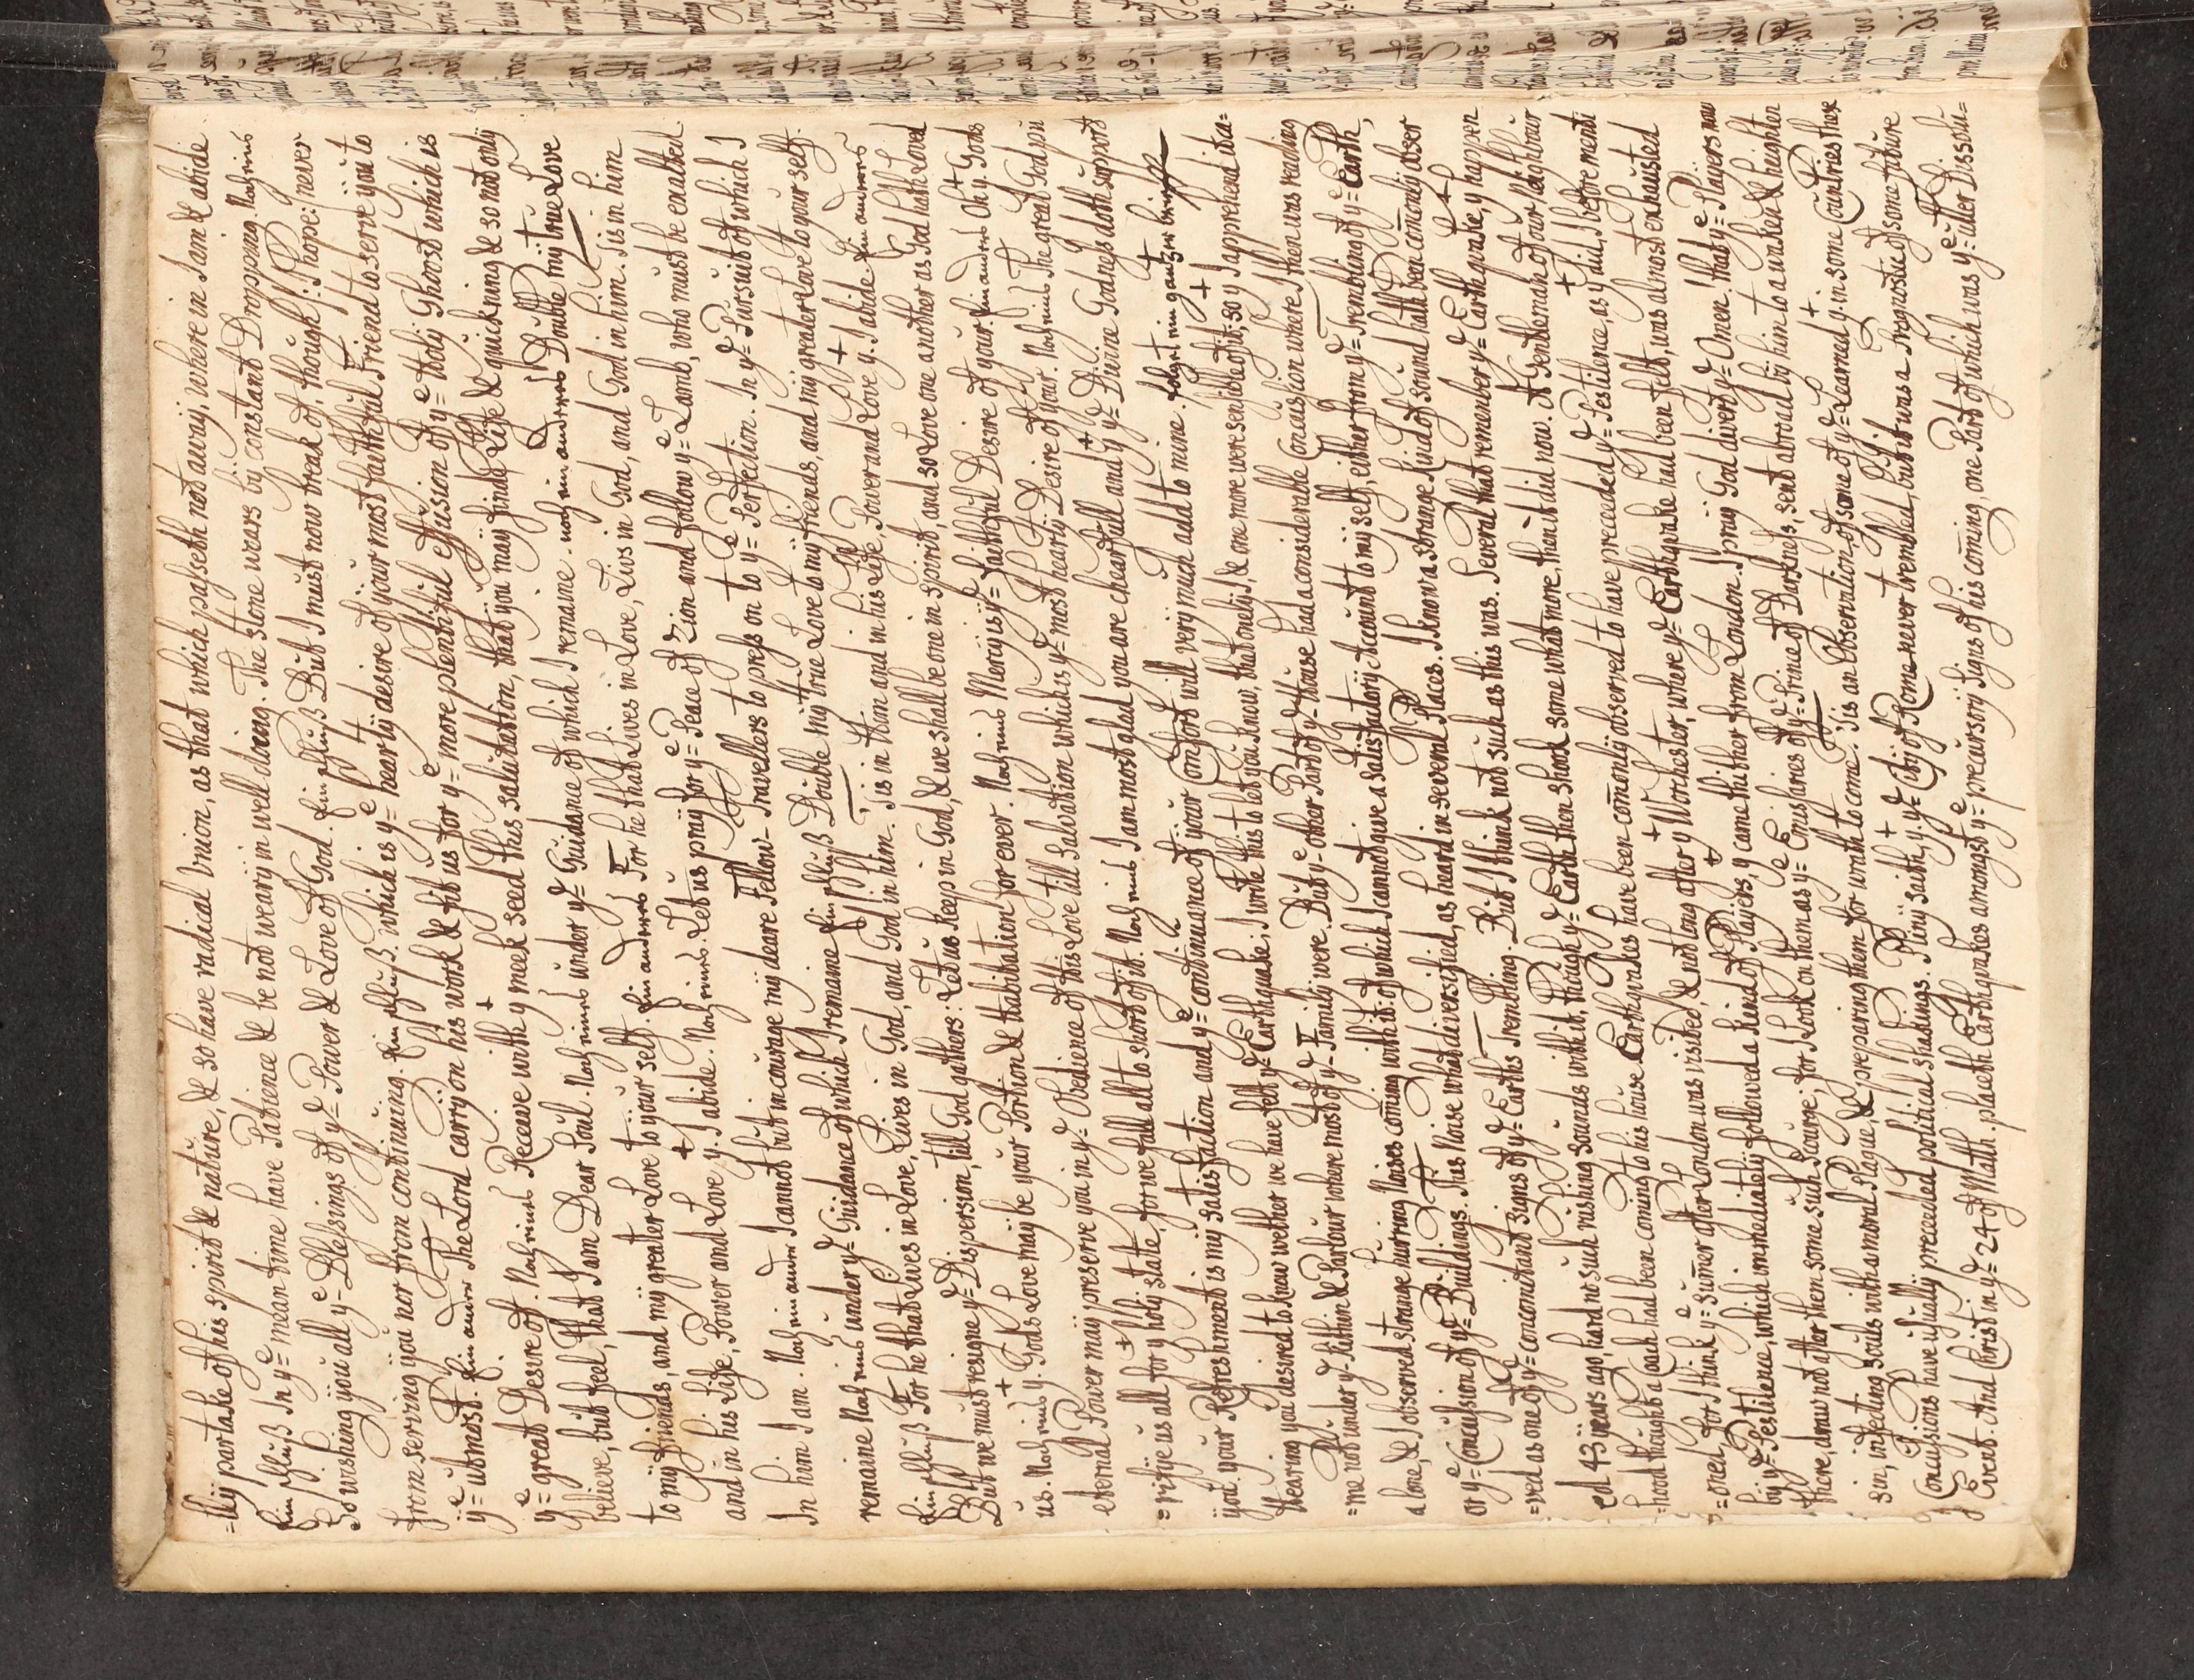 =lÿ partake of his spirit & nature, & so have radical Vnion, as that which passeth not awaÿ, where in I am & abide.
Ein schluß In yᵉ= mean time have Patience & be not wearÿ in well doeing. The stone wears bÿ constant Dropping. Noch eins
So wishing you all yᵉ= Blessings of yᵉ= Power & Love of God. Ein schluß But I must now break of, though I hope: never
from serving you nor from continuing. Ein schluß. which is yᵉ= heartÿ desire of ÿour most faithful Friend to serve ÿou to
yᵉ= utmost. Ein anders The Lord carrÿ on his work & fit us for yᵉ= more plentiful effusion of yᵉ= Holÿ Ghoost which is
yᵉ= great Desire of. Noch eins Receive with y+ meek seed this salutation, that ÿou maÿ find Life & quickning & so not onlÿ
believe, but feel, that I am Dear Soul. Noch eins under yᵉ= Guidance of which I remaine. noch ein anders Double mÿ true Love
to mÿ friends, and mÿ greater Love to ÿour self. Ein anders For he that Lives in Love, Livs in God, and God in him. Tis in him
and in his Life, Power and Love y+. I abide. Noch eins. Let us praÿ for yᵉ= Peace of Zion and follow yᵉ= Lamb, who must be exalted.
In him I am. Noch ein ander I cannot but incourage mÿ deare Fellow- Travellers to press on to yᵉ= Perfection. In yᵉ= Pursuit of which I
remaine Noch eins under yᵉ= Guidance of which I remaine Ein schluß Double mÿ true Love to mÿ friends, and mÿ greater Love to ÿour self.
Ein schluß For he that Lives in Love, Lives in God, and God in him. Tis in Him and in his Life, Power and Love y+. I abide. Ein anders
But we must resigne yᵉ= Dispersion, till God gathers: Let us keep in God, & we shall be one in spirit, and so Love one another as God hath Loved
us. Noch eins y+. Gods Love maÿ be ÿour Portion & Habitation for ever. Noch eins Mercÿ is yᵉ= faithful Desire of ÿour. Ein anders Oh y+. Gods
eternal Power maÿ preserve ÿou in yᵉ= Obedience of this Love till Salvation which is yᵉ= most heartÿ Desire of ÿour. Noch eins The great God pu
=rifÿe us all for y+ holÿ state, for we fall all to short of it. Noch eins I am most glad ÿou are chearfull and y+ yᵉ= Divine Godness doth support
ÿou. ÿour Refreshment is mÿ satisfaction and yᵉ= continuance of ÿour Comfort will verÿ much add to mine. folgt ein gantzer brieff
Hearing ÿou desired to know wether we have felt yᵉ= Earthquake; I wrote this to let ÿou know, that onelÿ I, & one more were sensible of it; so y+ I apprehend it ca=
=me not under yᵉ- kithin & Parlour where most of yᵉ- Familÿ were. But yᵉ- other Part of yᵉ- House had a considerable Concussion where I then was reading
alone, & I observed strange hurring Noises coming with it: of which I cannot give a satisfactorÿ Account to mÿ self, either from yᵉ= Trembling of yᵉ= Earth,
or yᵉ= Concussion of yᵉ- Buildings. This Noise what diversified, as heard in several Places. I know a strange kind of sound hath been commonlÿ obser
=ved as one of yᵉ= concomitant Signs of yᵉ= Earths Trembling. But I think not such as this was. Several that remember yᵉ= Earth quake, y+ happen
ed 43 ÿears ago, hard no such rushing sounds with it, though yᵉ= Earth then shook some what more, then it did now. A Gentleman of our Neighbour
=hood thought a Coach had been coming to his house. Earthquakes have been commonlÿ observed to have preceeded yᵉ= Pestilence, as y+ did, I before menti
=oned, for I think yᵉ= Summer after London was visited, & not long after y+ Worchester, where yᵉ= Earthquake had been felt, was almost exhausted
bÿ yᵉ= Pestilence, which immediatelÿ followed a kind of Plaÿers, y+ came thither from London. I praÿ God divert yᵉ= Omen, that yᵉ= Plaÿers now
there, draw not after them some such Scourge; for I look on them as yᵉ= Emissaries of yᵉ= Prince of Darkness, sent abroad bÿ him to awaken & heighten
sin, infecting Souls with a moral Plague, & preparing them for wrath to come. Tis an Observation of some of yᵉ= Learned y+. in some Countries these
Concussions have usuallÿ preceeded political shakings. Plinÿ saith, y+. yᵉ= Citÿ of Rome never trembled, but it was a Prognostic of some future
Event. And Christ in yᵉ= 24 of Math. placeth Earthquakes amongst yᵉ= precursorÿ signs of his coming, one Part of which was yᵉ= utter Dissolu=